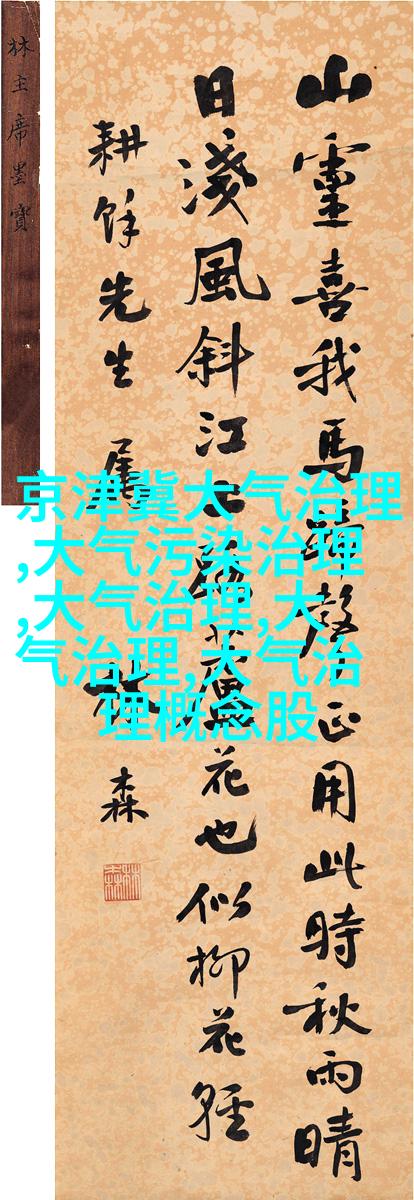 林主席墨寶
山靈喜我馬蹄聲正用此時秋雨晴
日淺風斜江上路蘆花也似柳花輕
耕餘先生屬
林森
京津冀大气治理
,大气污染治理
,大气治理,大
气治理,大气治
理概念股